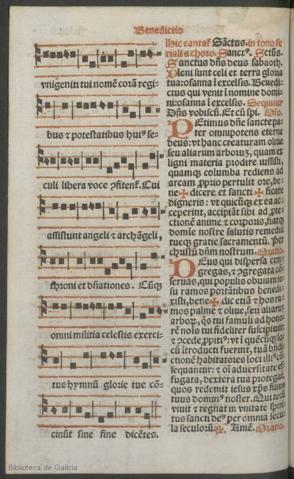 Benedictio
vnigeniti tui nomē corā regi-
bus ⁊ potestatibus huiꝰ se-
culi libera voce ꝓfitent̄. Cui
assistunt angeli ⁊ archāgeli,
throni et dn̄ationes. Cūqꝫ
omni militia celestis exerci-
tus hymnū glorie tue cō-
cinūt sine fine dicētes.
Hic cantat̄ Sāctus. in tono fe
riali a choro. Sanctꝰ. Sctūs.
Sanctus dn̄s deus sabaoth.
Pleni sunt celi et terra gloria
tua: osanna ī excelso. Benedi-
ctus qui venit ī nomine domi
ni: osanna ī excelso. Sequitur
Dn̄s vobiscū. Et cū spi. Oro.
Petimus dn̄e sancte pa-
ter omnipotens eterne
deus: vt hanc creaturam oliue
seu aliarum arborū, quam ex
ligni materia prodire iussisti,
quamqꝫ columba rediens ad
arcam ꝓprio pertulit ore, be-
ne✠dicere et sancti✠ficare
digneris: vt quicūqꝫ ex ea ac-
ceperint, accipiāt sibi ad ꝓte-
ctionē anime ⁊ corporis, fiatqꝫ
domine nostre salutis remediū
tueqꝫ gratie sacramentū. Per
christū dn̄m nostrum.
Deus qui dispersa con-
gregas, ⁊ ꝯgregata cō-
seruas, qui populis obuiam ie-
su ramos portātibus bene di-
xisti, bene✠dic etiā ⁊ hos ra-
mos palme ⁊ oliue, seu aliarū
arborū, qͦs tui famuli ad hono-
rē nois tui fideliter suscipiunt
sequantur: ⁊ oī aduersitate ef-
fugata, dextera tua protegat,
quos redemit iesus xp̄s filius
tuus dominꝰ noster. Qui tecū
viuit ⁊ regnat in vnitate spiri-
tus sancti deꝰ per omnia secu
la seculorū. R. Amē. Oratio.
Biblioteca de Galicia